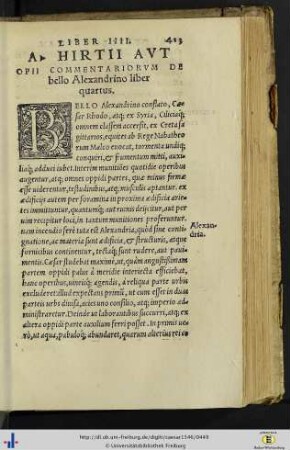 LIBER IIII. 413
A. HIRTII AVT
OPII COMMENTARIORVM DE
bello Alexandrino liber
quartus.
BELLO Alexandrino conflato, Cæ-
sar Rhodo, atq; ex Syria, Ciliciaq;
omnem classem accersit, ex Creta sa
gittarios, equites ab Rege Nabathæo
rum Malco euocat, tormenta undiq;
conquiri, & frumentum mitti, auxi-
liaq; adduci iubet. Interim munitiões quotidie operibus
augentur, atq; omnes oppidi partes, quæ minus firmæ
esse uiderentur, testudinibus, atq; musculis aptantur. ex
ædificijs autem per foramina in proxima ædificia arie-
tes immittuntur, quantumq; aut ruinis deijcitur, aut per
uim recipitur loci, in tantum munitiones proferuntur.
nam incendio ferè tuta est Alexandria, quòd sine conti-
gnatione, ac materia sunt ædificia, & structuris, atque
fornicibus continentur, tectaq; sunt rudere, aut paui-
mentis. Cæsar studebat maximè, ut, quàm angustissimam
partem oppidi palus à meridie interiecta efficiebat,
hanc operibus, uineisq; agendis, à reliqua parte urbis
excluderet: illud expectans primũ, ut cum esset in duas
partes urbs diuisa, acies uno consilio, atq; imperio ad-
ministraretur. Deinde ut laborantibus succurri, atq; ex
altera oppidi parte auxilium ferri posset. In primis ue-
rò, ut aqua, pabuloq; abundaret, quarum alterius rei co
Alexan-
dria.
http://dl.ub.uni-freiburg.de/diglit/caesar1546/0449
© Universitätsbibliothek Freiburg
Baden-Württemberg